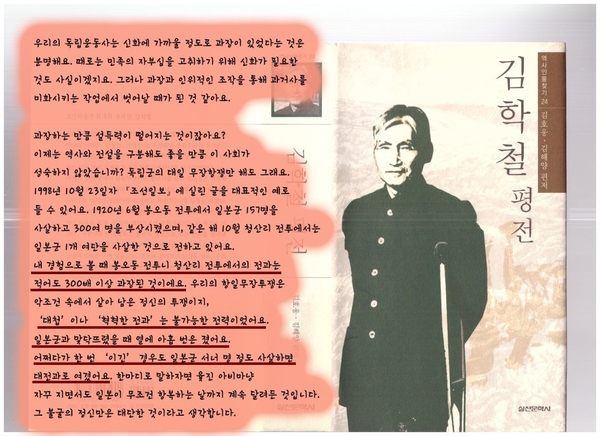 우리의 독립운동사는 신화에 가까울 정도로 과장이 있었다는 것은
분명해요. 때로는 민족의 자부심을 고취하기 위해 신화가 필요한
것도 사실이겠지요. 그러나 과장과 인위적인 조작을 통해 과거사를
미화시키는 작업에서 벗어날 때가 된 것 같아요.
과장하는 만큼 설득력이 떨어지는 것이잖아요?
이제는 역사와 전설을 구분해도 좋을 만큼 이 사회가
성숙하지 않았습니까? 독립군의 대일 무장항쟁만 해도 그래요.
1998년 10월 23일자 「조선일보」에 실린 글을 대표적인 예로
들 수 있어요. 1920년 6월 봉오동 전투에서 일본군 157명을
사살하고 300여 명을 부상시켰으며, 같은 해 10월 청산리 전투에서는
일본군 1개 여단을 사살한 것으로 전하고 있어요.
내 경험으로 볼 때 봉오동 전투니 청산리 전투에서의 전과는
적어도 300배 이상 과장된 것이에요. 우리의 항일무장투쟁은
악조건 속에서 살아 남은 정신의 투쟁이지,
'대첩'이나 '혁혁한 전과'는 불가능한 전력이었어요.
일본군과 맞닥뜨렸을 때 열에 아홉 번은 졌어요.
어쩌다가 한 번 '이긴' 경우도 일본군 서너 명 정도 사살하면
대전과로 여겼어요. 한마디로 말하자면 울진 아비마냥
자꾸 지면서도 일본이 무조건 항복하는 날까지 계속 달려든 것입니다.
그 불굴의 정신만은 대단한 것이라고 생각합니다.
김학철 평전
역사인물찾기 26
김호웅·김해양 편저
실천문학사